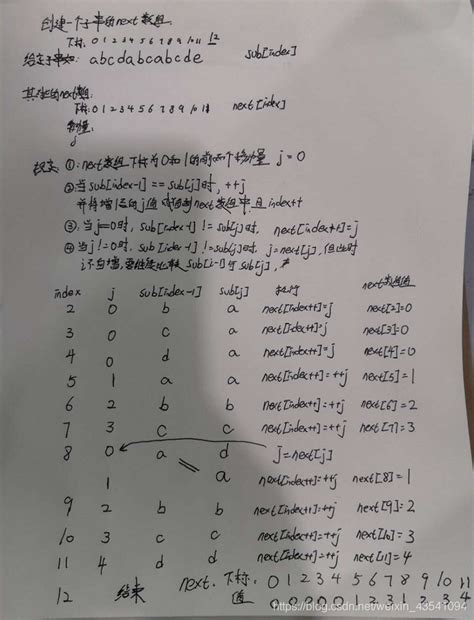 创建一个子串的next数组
下标: 0 1 2 3 4 5 6 7 8 9 10 11 12
给定子串如: abcdabcabcde sub[index]
其对应的next数组:
下标: 0 1 2 3 4 5 6 7 8 9 10 11 next[index]
j
①: next数组下标为0和1的前两个 j=0
②当sub[index-1] == sub[j]时, ++j
并将增1后的j值 到next数组中 且index++
③, 当j=0时, sub[index-1] != sub[j]时, next[index++]=j
④当j!=0时, sub[index-1] != sub[j]时, j=next[j], 但此时
i不自增, 要继续比较 sub[i-1]与sub[j],
index j sub[index-1] sub[j] 执行 next数组值
2 0 b a next[index++]=j next[2]=0
3 0 c a next[index++]=j next[3]=0
4 0 d a next[index++]=j next[4]=0
5 1 a a next[index++]=++j next[5]=1
6 2 b b next[index++]=++j next[6]=2
7 3 c c next[index++]=++j next[7]=3
8 0 a d j=next[j]
1 a next[index++]=++j next[8]=1
9 2 b b next[index++]=++j next[9]=2
10 3 c c next[index++]=++j next[10]=3
11 4 d d next[index++]=++j next[11]=4
12 结束 next. 下标: 0 1 2 3 4 5 6 7 8 9 10 11
值 0 0 0 0 0 1 2 3 1 2 3 4
https://blog.csdn.net/weixin_43541094